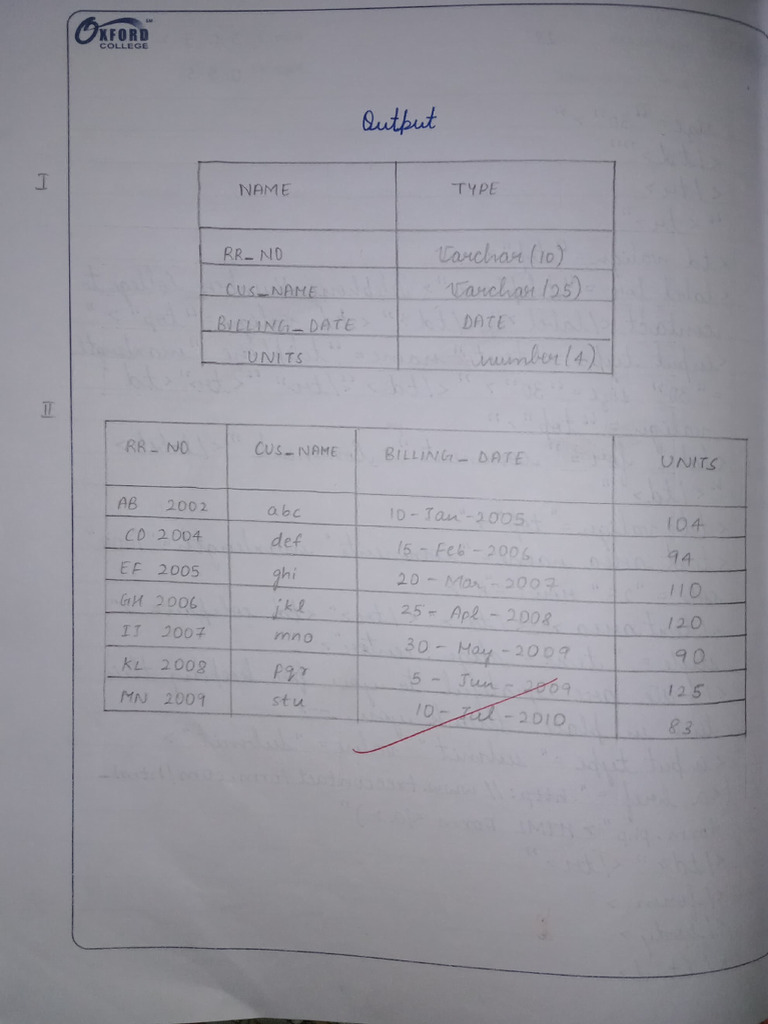 OXFORD
COLLEGE
Output
I
NAME TYPE
RR_NO Varchar(10)
CUS_NAME Varchar(25)
BILLING_DATE DATE
UNITS number(4)
II
RR_NO CUS_NAME BILLING_DATE UNITS
AB 2002 abc 10-Jan-2005 104
CD 2004 def 15-Feb-2006 94
EF 2005 ghi 20-Mar-2007 110
GH 2006 jkl 25-Apl-2008 120
IJ 2007 mno 30-May-2009 90
KL 2008 pqr 5-Jun-2009 125
MN 2009 stu 10-Jul-2010 83